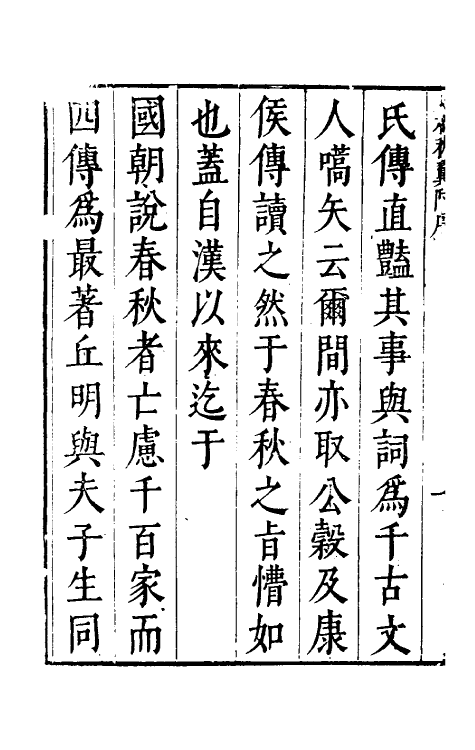 氏傳直豔其事與詞爲千古文
人嚆矢云爾間亦取公穀及康
侯傳讀之然于春秋之旨懵如
也蓋自漢以來迄于
國朝說春秋者亡慮千百家而
四傳爲最著丘明與夫子生同